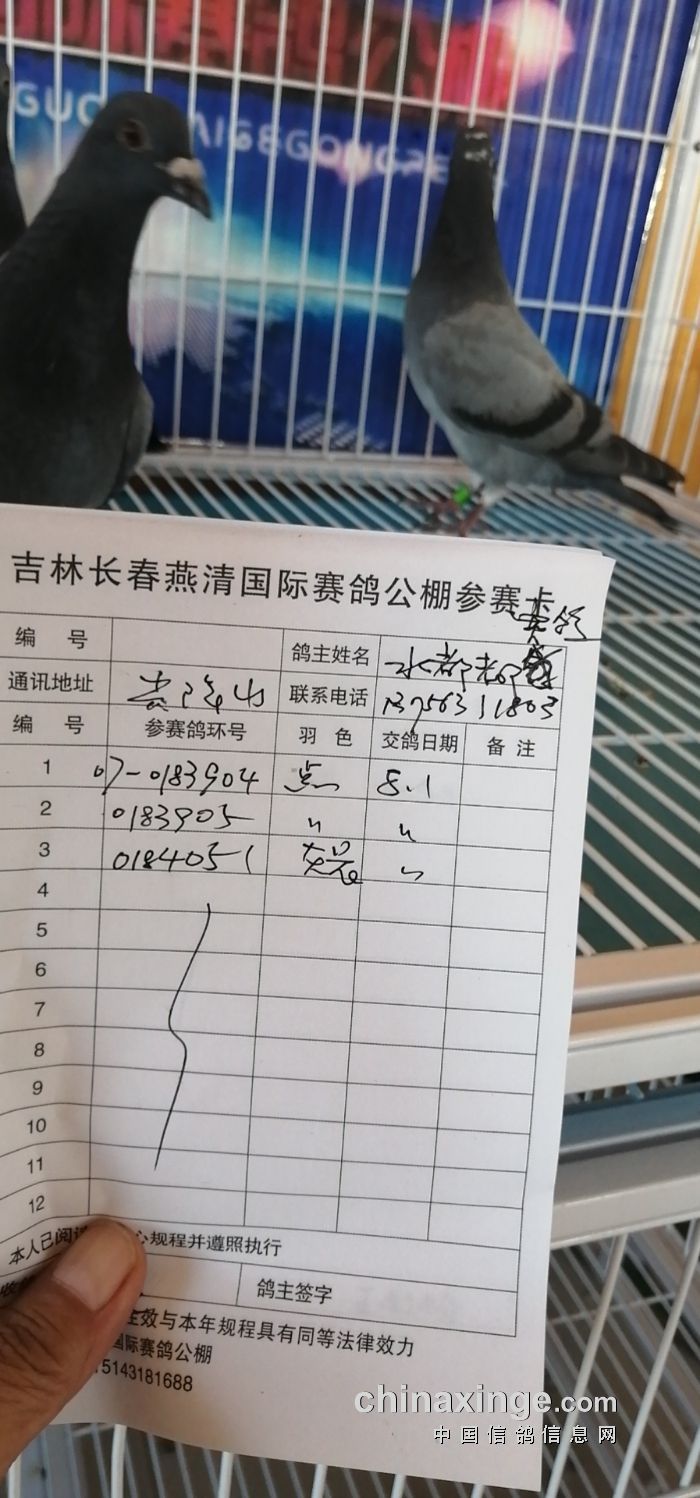 GUO AIGEGONGPE
吉林长春燕清国际赛鸽公棚参赛卡
编 号 鸽主姓名
通讯地址 联系电话 13756311803
编 号 参赛鸽环号 羽 色 交鸽日期 备 注
1 07-0183904 点 8.1
2 0183905 〃 〃
3 0184051 〃
4
5
6
7
8
9
10
11
12
本人已阅读 心规程并遵照执行
鸽主签字
生效与本年规程具有同等法律效力
国际赛鸽公棚
15143181688
chinaxinge.com
中国信鸽信息网